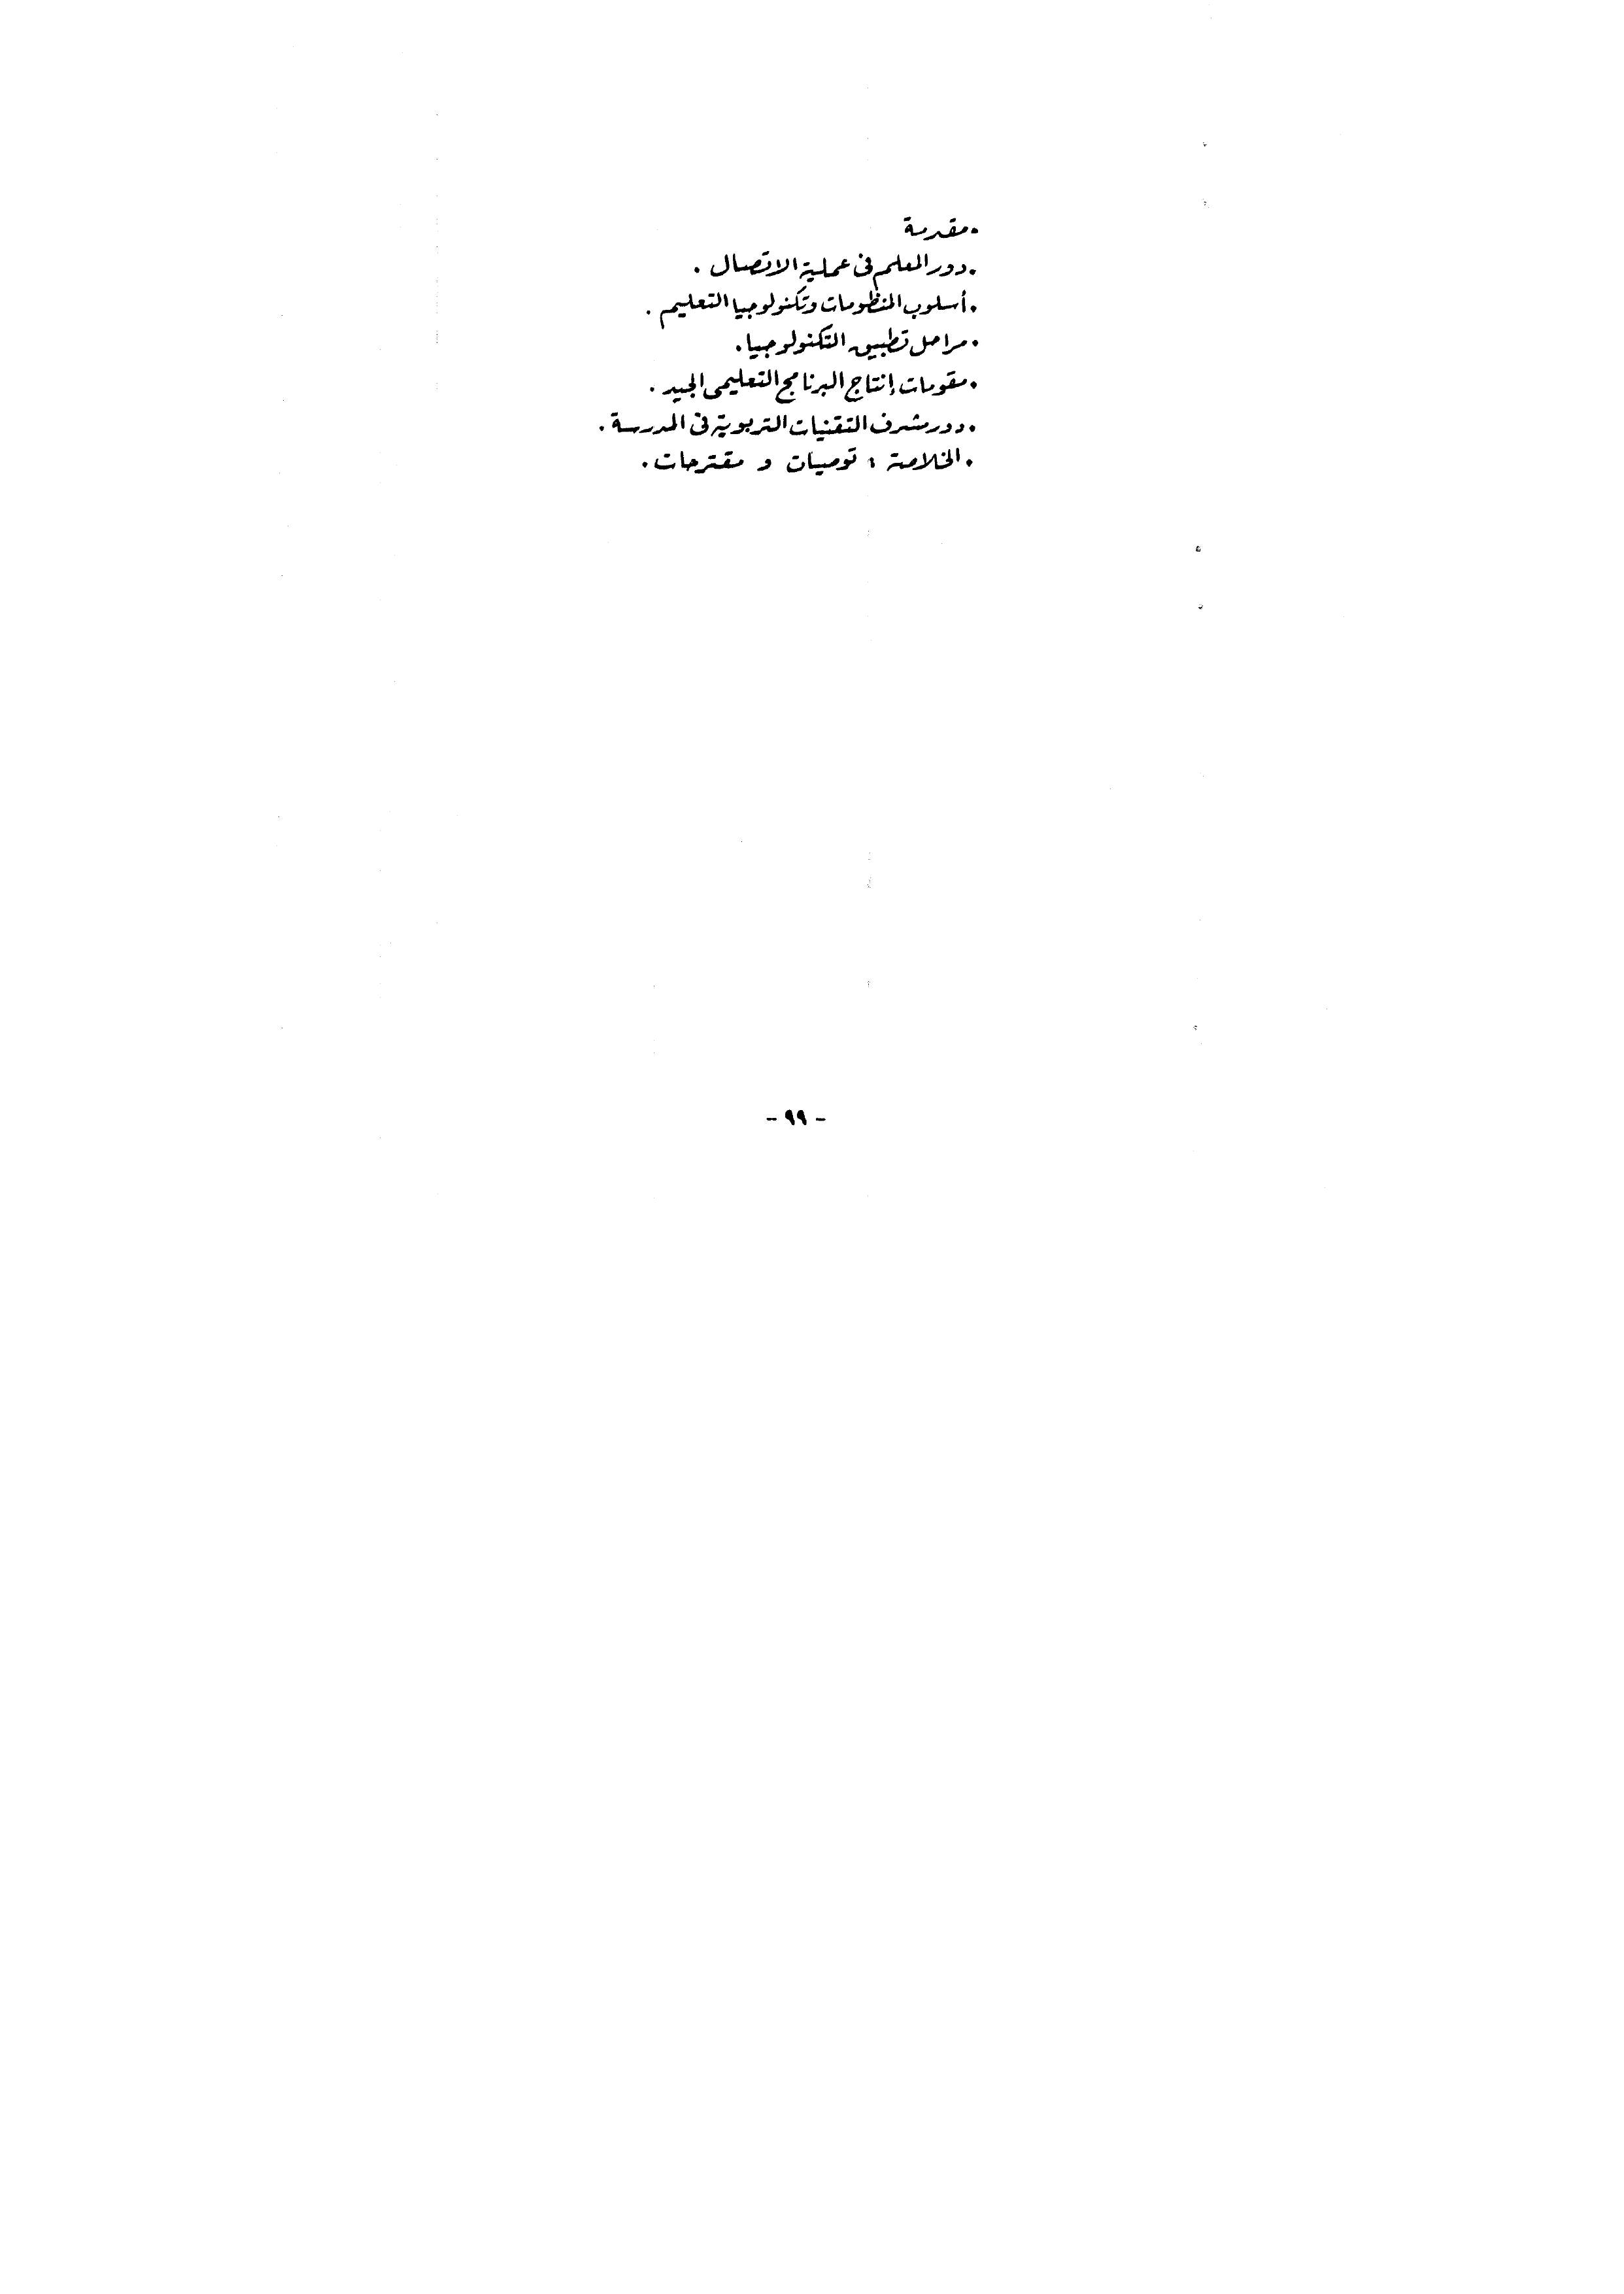 • مقدمة
• دور المعلم في عملية الاتصال .
• أسلوب المنظومات وتكنولوجيا التعليم .
• مراحل تطبيق التكنولوجيا .
• مقومات إنتاج البرنامج التعليمى الجيد .
• دور مشرف التقنيات التربوية في المدرسة .
• الخلاصة : توصيات و مقترحات .
- ٩٩ -